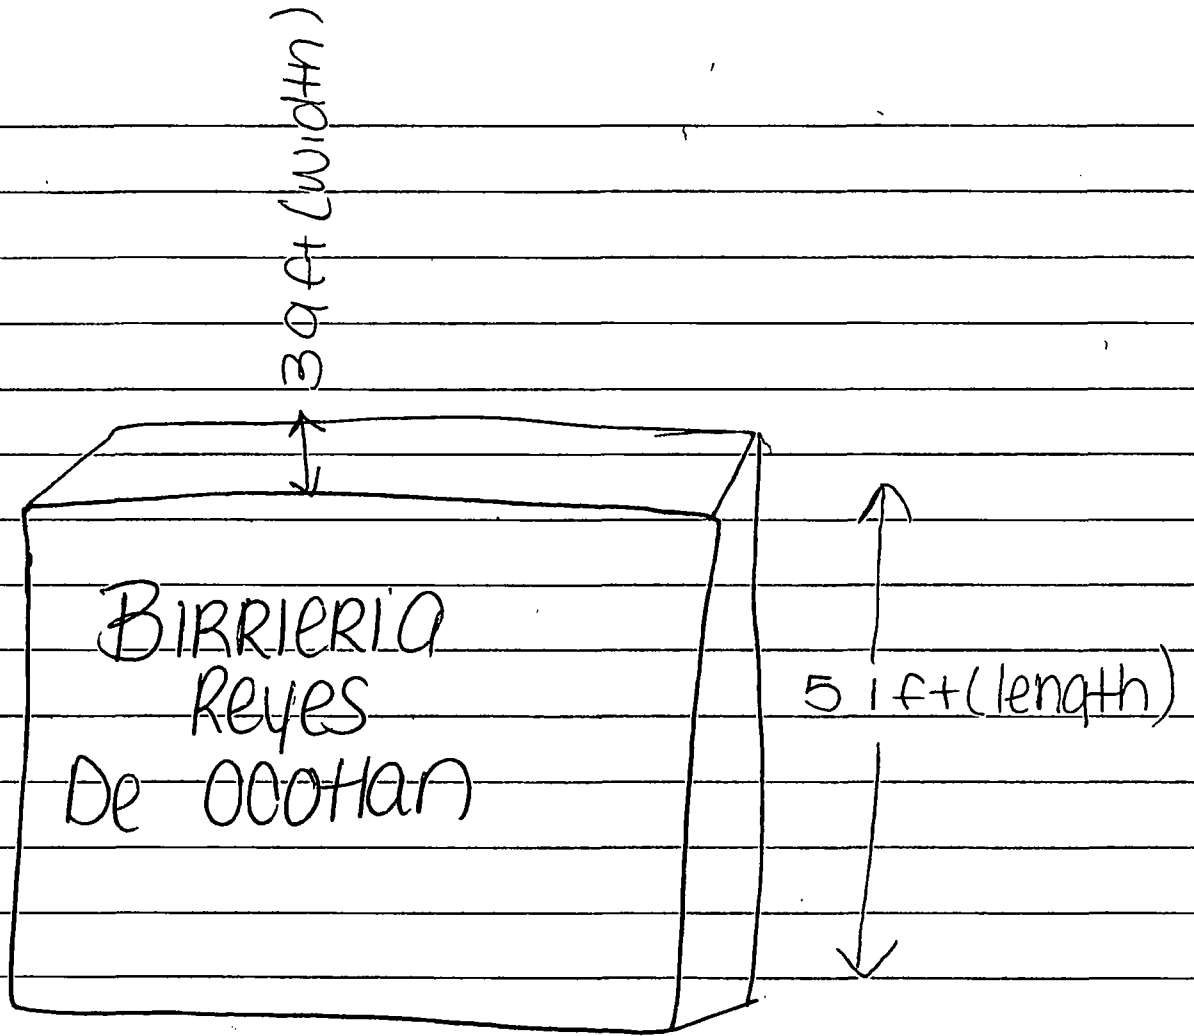 39 ft (width)
BIRRIERIA
Reyes
De OCOtlan
51 ft (length)